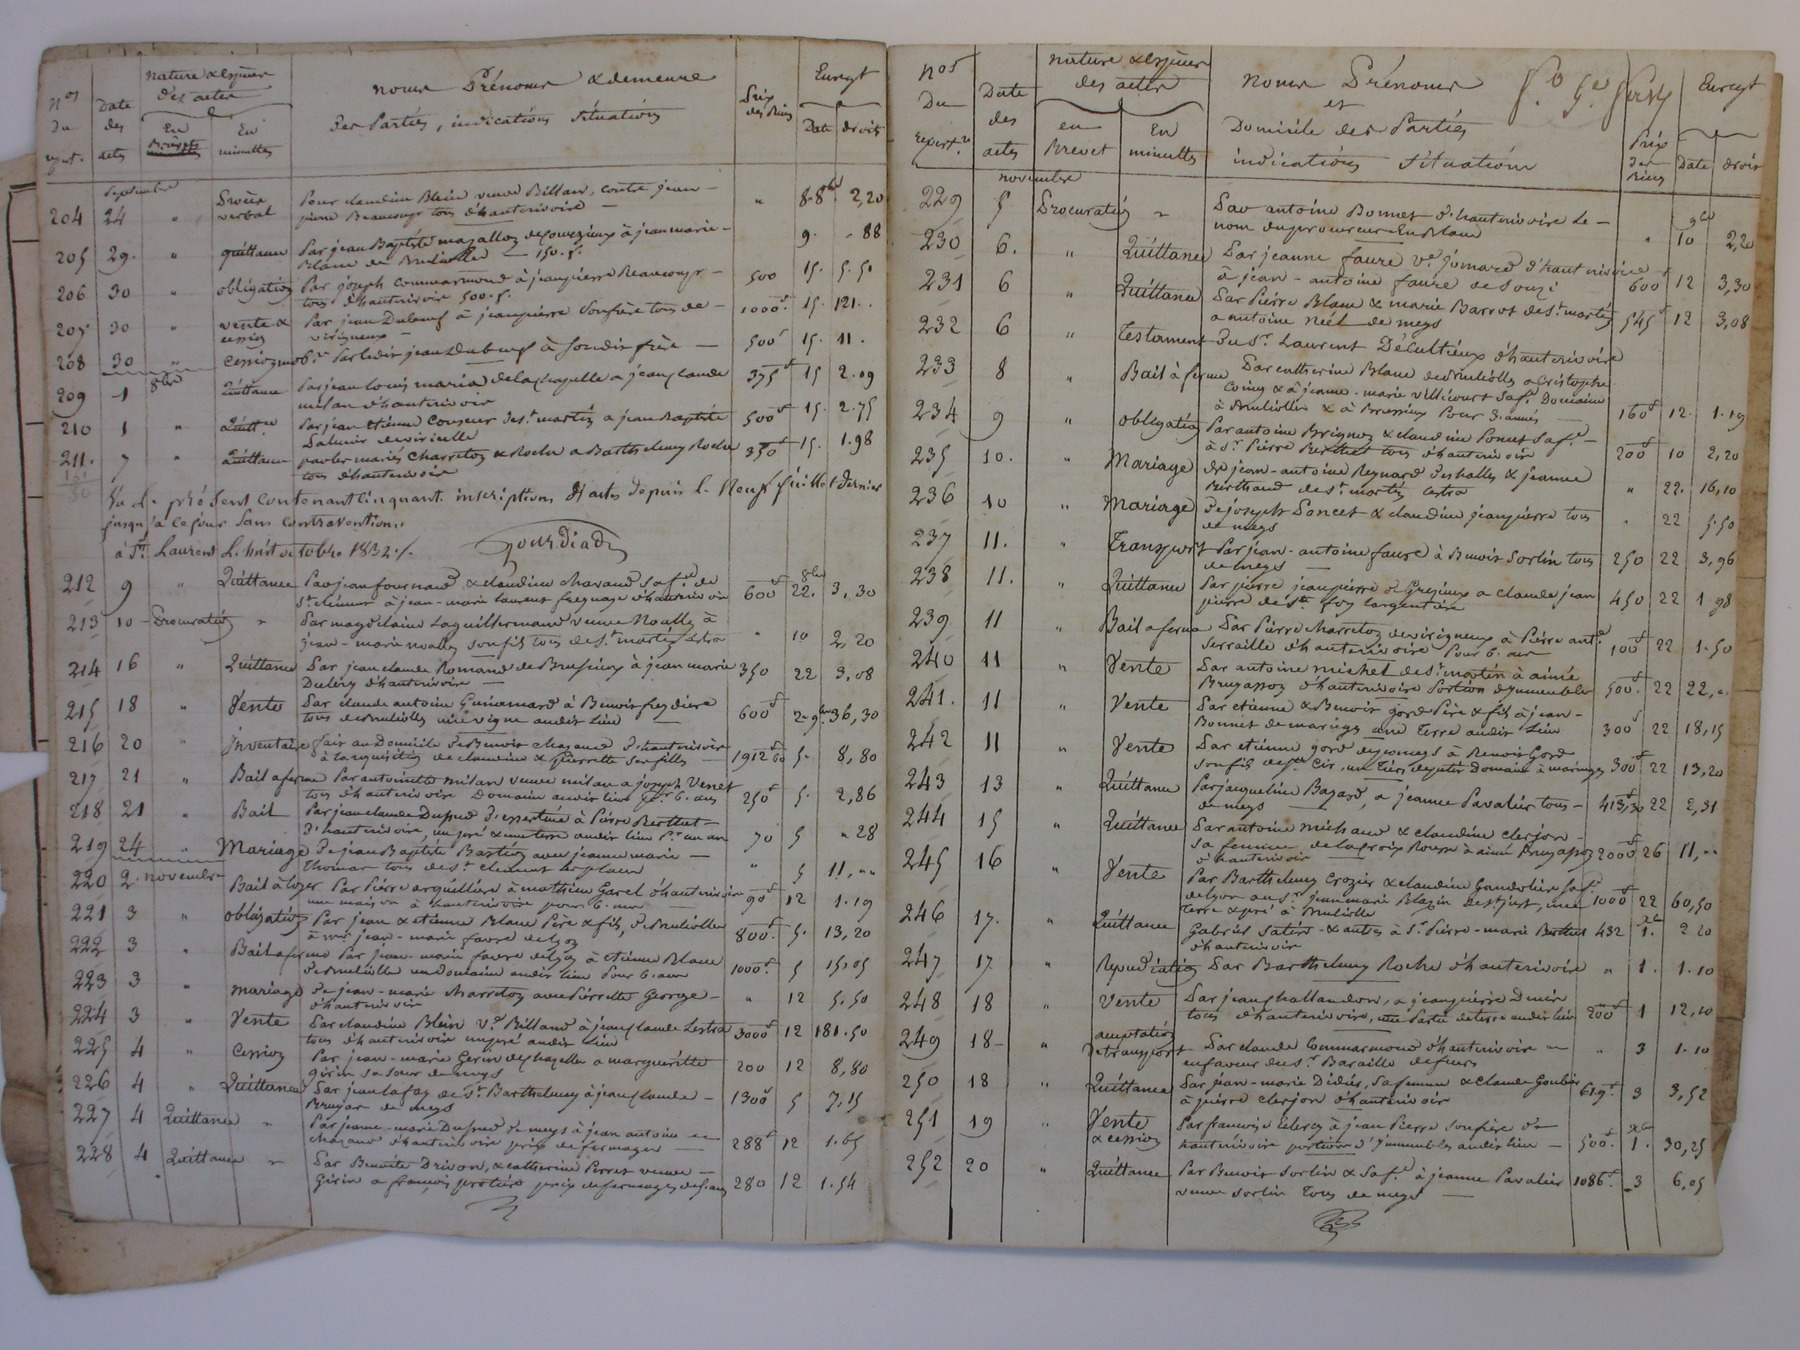 Nos du repert. Date des actes nature & espèces des actes En Brevets En minuttes noms Prénoms & demeure des Parties, indications Situations Prix des Biens Enregt Date droits
Septembre
204 24 " Procès verbal Pour claudine Blein veuve Billard, contre jean-
pierre Beaucoup tous d'hauterivoire — " 8. 8bre 2,20
205 29. " quittance Par jean Baptiste magallon à jean marie
Blanc de Brulliolle — 150 f. 9. " 88
206 30 " obligation Par joseph Commarmond à jeanpierre Beaucoup -
tous d'hauterivoir 500 f. 500 15. 5.50
207 30 " vente & cession Par jean Duboeuf à jeanpierre Soufrère tous de -
virigneux 1000f 15. 121..
208 30 " Cession mob.re Par ledit jean Duboeuf à Soudit frère — 500f 15. 11.
8bre
209 1 quittance Par jean louis maria delachapelle a jean claude
milan d'hauterivoir 375f 15 2.09
210 1 " quitt.ce Par jean étienne Couseur de st. martin a jean Baptiste
500f 15. 2.75
211. 7 " quittance par les mariés Charreton & Roche a Barthelemy Roche
tous d'hauterivoir 350f 15. 1.98
Vu Le présent Contenant Cinquante inscriptions d'actes depuis le Neuf juillet dernier
jusqu'a ce jour Sans Contravention.
à St. Laurent le huit octobre 1832./.
212 9 " Quittance Par jean fournand & claudine Chavand sa f.e de
à jean-marie laurent d'hauterivoir 600f 22. 8bre 3,30
213 10 Procuration " Par magdelaine Laguillermaud veuve Noally à
jean-marie noally son fils tous de st. martin Lestra " 10 2,20
214 16 " Quittance Par jean claude Romand de Brussieux à jean marie
d'hauterivoir 350 22 3,08
215 18 " Vente Par claude antoine Guinamard à Benoit freydière
tous de Brulliolles une vigne audit lieu 600f 2 9bre 36,30
216 20 " inventaire fait au Domicile de Benoit Chazaud d'hauterivoir
à la requisition de claudine & pierrette ses filles — 1912f60 5. 8,80
217 21 " Bail a ferme Par antoinette milan veuve milan a joseph Venet
tous d'hauterivoir Domaine audit lieu pr. 6. ans 250f 5. 2,86
218 21 " Bail Par jean claude Dupuid à Pierre Berthet -
d'hauterivoir, un pré & une terre audit lieu Pr. un an 70 5 " 28
219 24 " Mariage De jean Baptiste Bastion avec jeanne marie —
thomas tous de st. clement les places " 5 11,""
220 2. novembre Bail à loyer Par Pierre arquillière à mathieu Garel d'hauterivoir
une maison à hauterivoir pour 6. ans — 90f 12 1.19
221 3 " obligation Par jean & etienne Blanc Père & fils, de Brulliolles
à mr. jean-marie favre de Lyon 800f. 5. 13,20
222 3 " Bail a ferme Par jean-marie favre de Lyon à etienne Blanc
de Brulliolle un Domaine audit lieu Pour 6. ans 1000f. 5 15,05
223 3 " mariage De jean-marie Charreton avec Pierrette George -
d'hauterivoir " 12 5.50
224 3 " Vente Par claudine Blein Ve. Billard à jean claude Lestra
tous d'hauterivoir un pré audit lieu 3000f 12 181.50
225 4 " Cession Par jean-marie Gerin a marguerite
girin sa soeur de meys 200 12 8,80
226 4 " Quittance Par jean lafay de St. Barthelemy à jean claude -
Bruyas de meys 1300f 5 7,15
227 4 Quittance " Par jeanne-marie Dupuid de meys à jean antoine
Chazaud d'hauterivoire prix de fermages — 288f 12 1.65
228 4 Quittance " Par Benoite Drivon, & catherine Perret veuve —
Girin a françois protière prix de fermages de 280 12 1.54
Nos Du Repert.re Date des actes nature & espèces des actes en Brevet En minuttes Noms Prénoms et Domicile des Parties indications Situations Prix des Biens Enregt Date droits
novembre
229 5 Procuration " Par antoine Bonnet d'hauterivoire le -
nom du procureur En Blanc " 10 9bre 2,20
230 6. " Quittance Par jeanne faure Ve. jomard d'hauterivoire
à jean-antoine faure de Souzi 600f 12 3,30
231 6 " Quittance Par Pierre Blanc & marie Barrot de St. martin
a antoine Néel de meys 545f 12 3,08
232 6 " testament Du Sr. Laurent Décultieux d'hauterivoire
233 8 " Bail à ferme Par catherine Blanc de Brulliolles a Cristophe
Coing & à jeanne-marie sa fe. Domaine
à Brulliolles & à Brussieux Pour 3. années — 160f 12. 1.19
234 9 " obligation Par antoine Brignon & claudine Poncet sa fe. -
à Sr. Pierre Berthet tous d'hauterivoir 200f 10 2,20
235 10. " Mariage de jean-antoine Reynard des halles & jeanne
Berthaud de St. martin lestra " 22. 16,10
236 10 " Mariage De joseph Poncet & claudine jeanpierre tous
de meys " 22 5.50
237 11. " Transport Par jean-antoine faure à Benoit Sorlin tous
de meys 250 22 3,96
238 11. " Quittance Par pierre jeanpierre de Grezieux a claude jean
pierre de Ste. foy largentière 450 22 1 98
239 11 " Bail a ferme Par Pierre Charreton de virigneux à Pierre ant.e
Serraille d'hauterivoire Pour 6. ans 100f 22 1.50
240 11 " Vente Par antoine michel de St. martin à aimé
Bruyasson d'hauterivoire Portion d'immeubles 500f. 22 22,".
241. 11 " Vente Par etienne & Benoit gord Père & fils à jean -
Bonnet de maringes une terre audit lieu 300f 22 18,15
242 11 " Vente Par etienne gord de à Benoit Gord
son fils de St. Cir, un tiers de petit Domaine à maringes 300f 22 13,20
243 13 " Quittance Par jacqueline Bazard, a jeanne Pavalier tous -
de meys 413f,30 22 2,31
244 15 " Quittance Par antoine michaud & claudine clerjon -
sa femme de la croix Rousse à aimé Bruyasson
d'hauterivoir 2000f 26 11,""
245 16 " Vente Par Barthelemy Crozier & claudine Gaudolière sa fe.
de Lyon au Sr. jean marie Blazin de St. just, une
terre & pré à Brulliolle 1000f 22 60,50
246 17. " Quittance Gabriel Satin & autres à Sr. Pierre-marie Berthet
d'hauterivoir 432 1. xbre 2 20
247 17 " Repudiation Par Barthelemy Roche d'hauterivoire " 1. 1.10
248 18 " Vente Par jean challandon, a jean pierre Denis
tous d'hauterivoire, une Partie de terre audit lieu 200f 1 12,10
249 18 " acceptation de transport Par claude Commarmond d'hauterivoir —
enfaveur du Sr. Baraille de feurs " 3 1.10
250 18 " Quittance Par jean-marie Didier, sa femme & claude Goubier
à pierre clerjon d'hauterivoir 619f 3 3,52
251 19 " Vente & cession Par françois Clerc à jean Pierre Soufrère d'
hauterivoire portion d'immeubles audit lieu — 500f. 1. xbre 30,25
252 20 " Quittance Par Benoit Sorlin & sa fe. à jeanne Pavalier
veuve Sorlin tous de meys — 1086f. 3 6,05